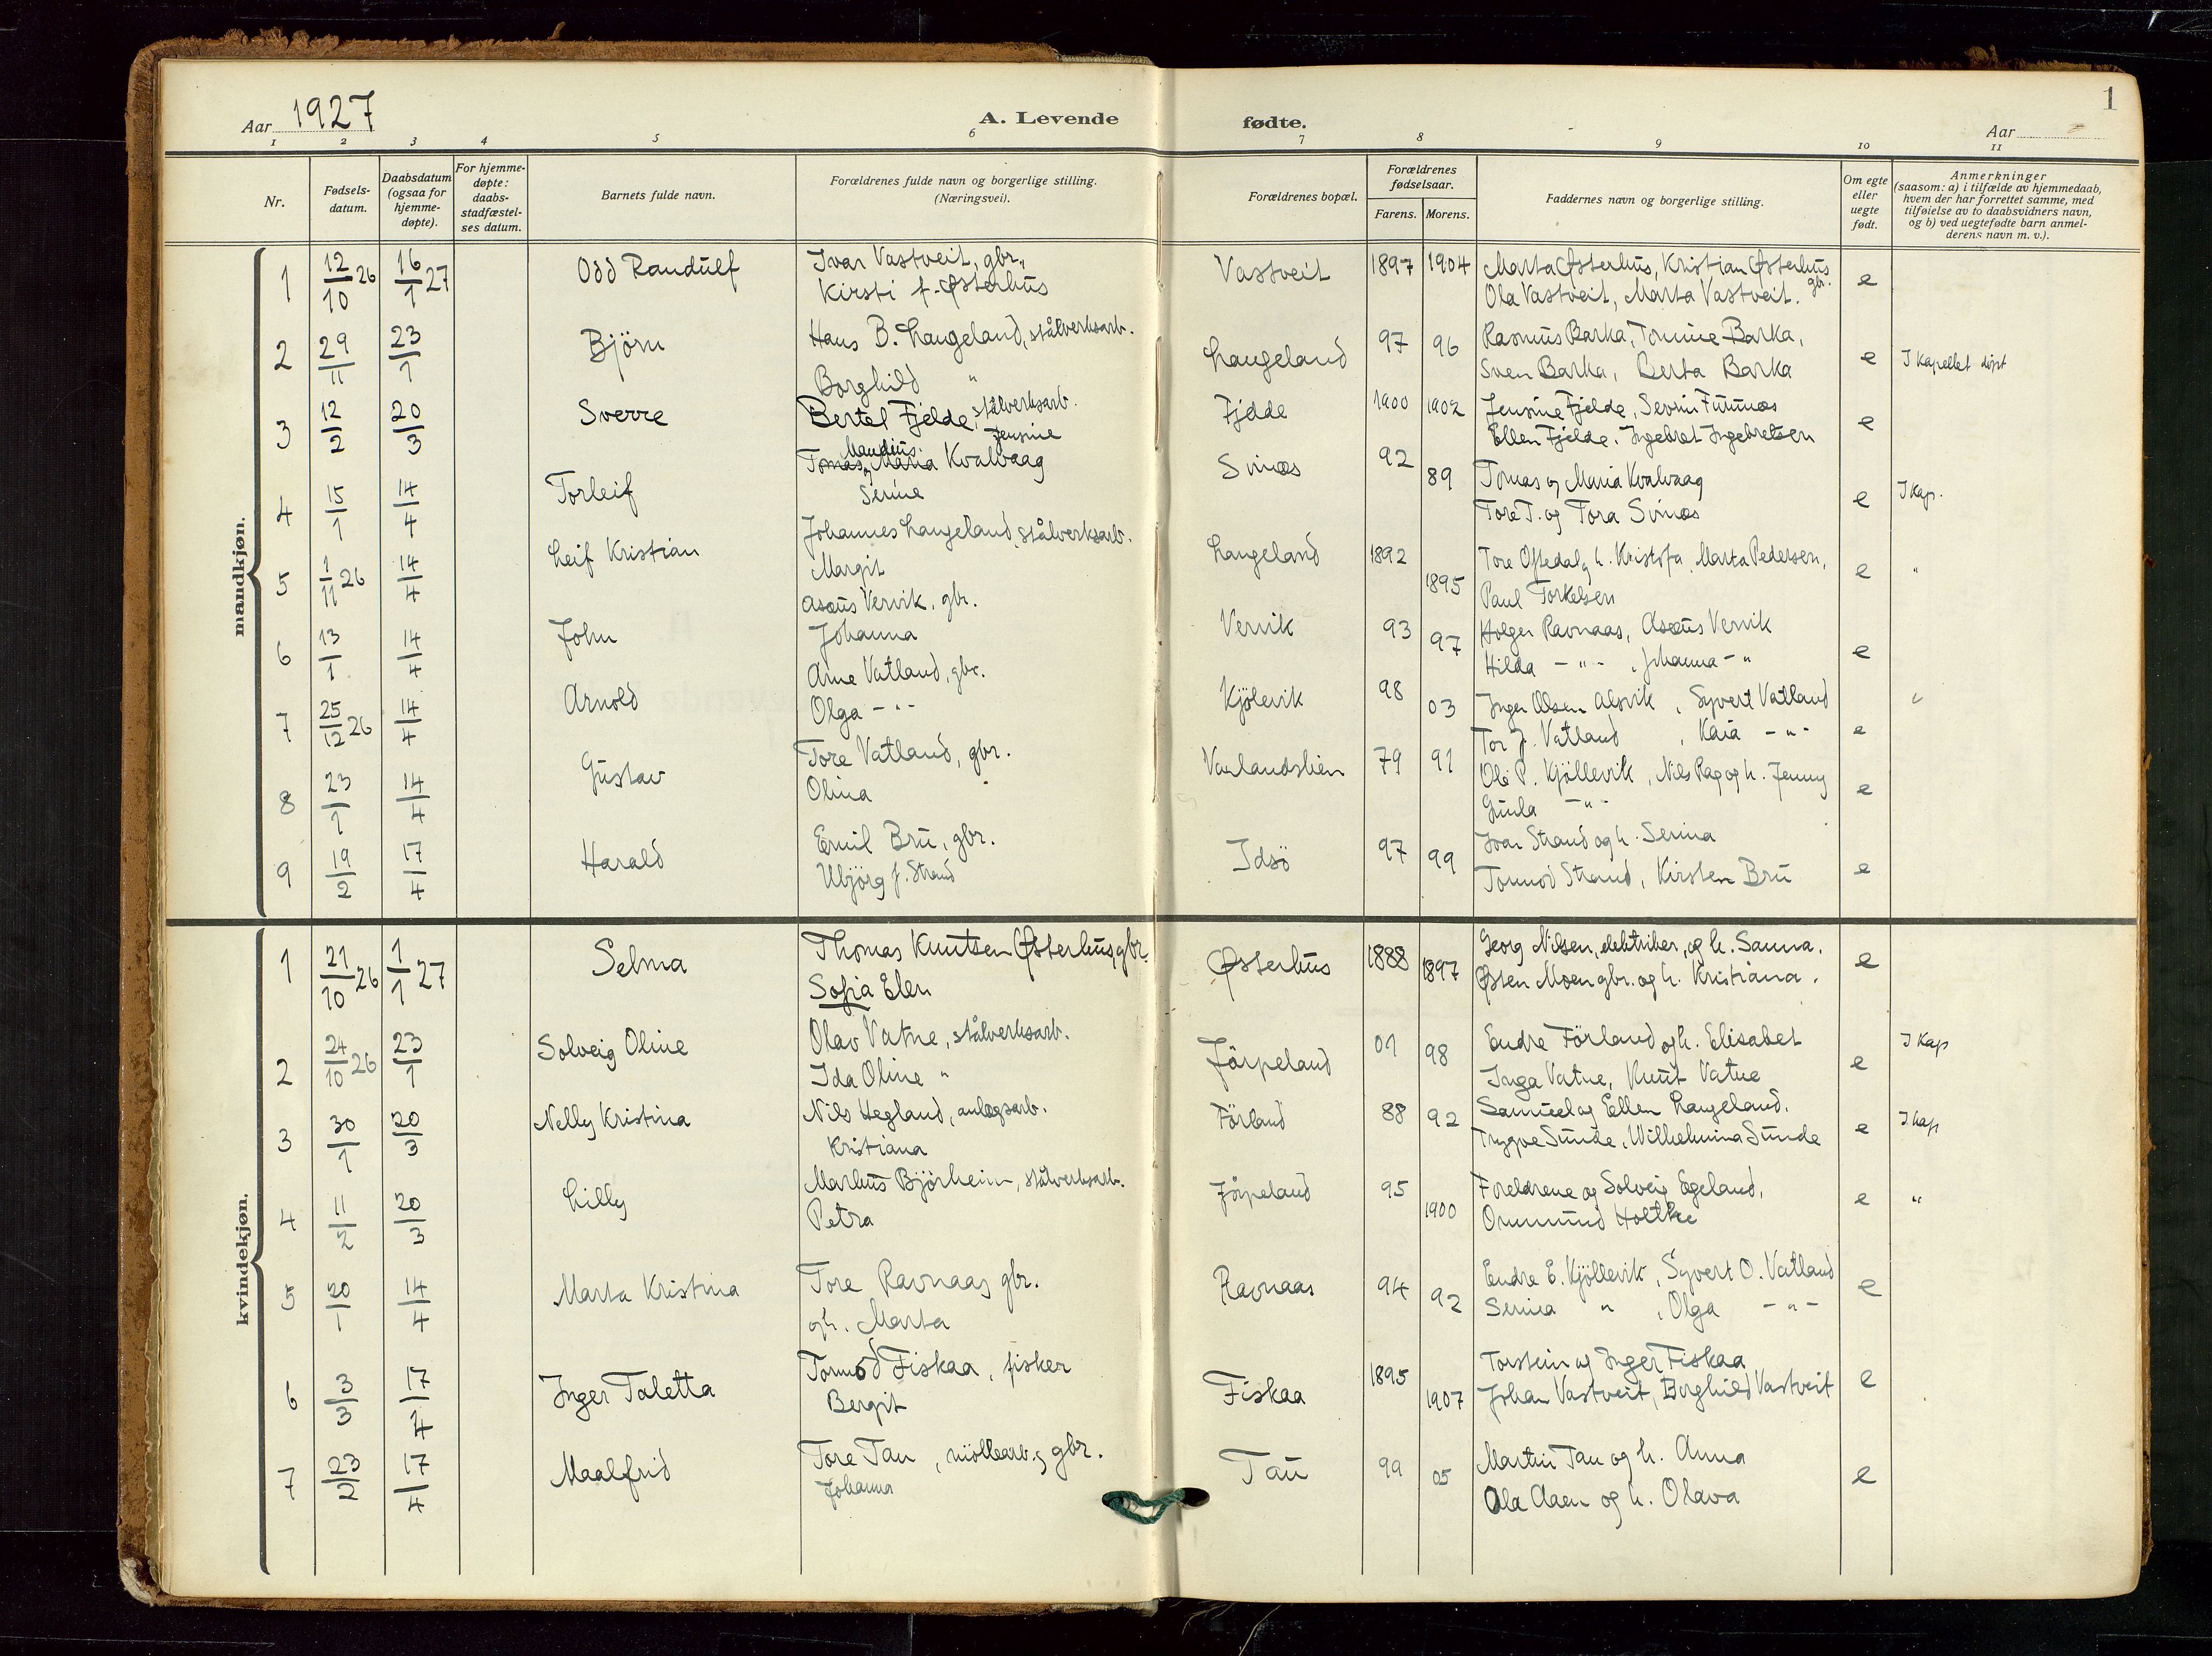 Aar 1927
A. Levende
fødte.
Aar
1
1 2 3 4 5 6 7 8 9 10 11
Nr.
Fødsels-
datum.
Daabsdatum
(ogsaa for
hjemme-
døpte).
For hjemme-
døpte:
daabs-
stadfæstel-
ses datum.
Barnets fulde navn.
Forældrenes fulde navn og borgerlige stilling.
(Næringsvei).
Forældrenes bopæl.
Forældrenes
fødselsaar.
Farens. Morens.
Faddernes navn og borgerlige stilling.
Om egte
eller
uegte
født.
Anmerkninger
(saasom: a) i tilfælde av hjemmedaab,
hvem der har forrettet samme, med
tilføielse av to daabsvidners navn,
og b) ved uegtefødte barn anmel-
derens navn m. v.).
mandkjøn.
1 12/10 26 16/1 27 Odd Randulf Ivar Vastveit, gbr., Vastveit 1897 1904 Marta Østerhus, Kristian Østerhus gbr. e
Kirsti f. Østerhus Ola Vastveit, Marta Vastveit.
2 29/11 23/1 Björn Hans B. Langeland, stålverksarb. Langeland 97 96 Rasmus Barka, Tomine Barka, e I Kapellet döpt
Borghild " Sven Barka, Berta Barka
3 12/2 20/3 Sverre Bertel Fjelde, stålverksarb. Fjelde 1900 1902 Jensine Fjelde, Sevrin e
Jensine Ellen Fjelde. Ingebret Ingebretsen
4 15/1 14/4 Torleif Tomas og Maria Kvalvaag Svines 92 89 Tomas og Maria Kvalvaag e I Kap.
Serine Tore T. og Tora Svines
5 1/11 26 14/4 Leif Kristian Johannes Langeland, stålverksarb. Langeland 1892 1895 Tore Oftedal og h. Kristofa, Marta Pedersen, e "
Margit Paul Torkelsen
6 13/1 14/4 John Asæus Vervik, gbr. Vervik 93 97 Holger Ravnaas, Asæus Vervik e
Johanna Hilda - " - , Johanna - "
7 25/12 26 14/4 Arnold Arne Vatland, gbr. Kjölevik 98 03 Inger Olsen Alsvik, Syvert Vatland e
Olga - " - Tor J. Vatland, Kaia - " -
8 23/1 14/4 Gustav Tore Vatland, gbr. 79 91 Ole P. Kjöllevik, Nils Rag og h. Jenny e
Olina Gunla - " -
9 19/2 17/4 Harald Emil Bru, gbr. Idsö 97 99 Ivar Strand og h. Serina e
Ubjörg f. Strand Tormod Strand, Kirsten Bru
kvindekjøn.
1 21/10 26 1/1 27 Selma Thomas Knutsen Østerhus, gbr. Østerhus 1888 1897 Georg Nilsen, elektriker, og h. Sanna. e
Sofia Elen Østen Moen gbr. og h. Kristiana.
2 24/10 26 23/1 Solveig Oline Olav Vatne, stålverksarb. Jörpeland 01 98 Endre Förland og h. Elisabet e I Kap
Ida Oline " Inga Vatne, Knut Vatne
3 30/1 20/3 Nelly Kristina Nils Hegland, anlegsarb. Förland 88 92 Samuel og Ellen Langeland. e I Kap
Kristiana Trygve Sunde, Wilhelmina Sunde
4 11/2 20/3 Lilly Markus Björheim, stålverksarb. Jörpeland 95 1900 Foreldrene og Solveig Egeland, e "
Petra Ommund Holtke
5 20/1 14/4 Marta Kristina Tore Ravnaas gbr. Ravnaas 94 92 Endre E. Kjöllevik, Syvert O. Vatland e
og h. Marta Serina " , Olga - " -
6 3/3 17/4 Inger Taletta Tormod Fiskaa, fisker Fiskaa 1895 1907 Torstein og Inger Fiskaa e
Bergit Johan Vastveit, Borghild Vastveit
7 23/2 17/4 Maalfrid Tore Tau, möllearb. og gbr. Tau 99 05 Martin Tau og h. Anna e
Johanna Ola Aaen og h. Olava